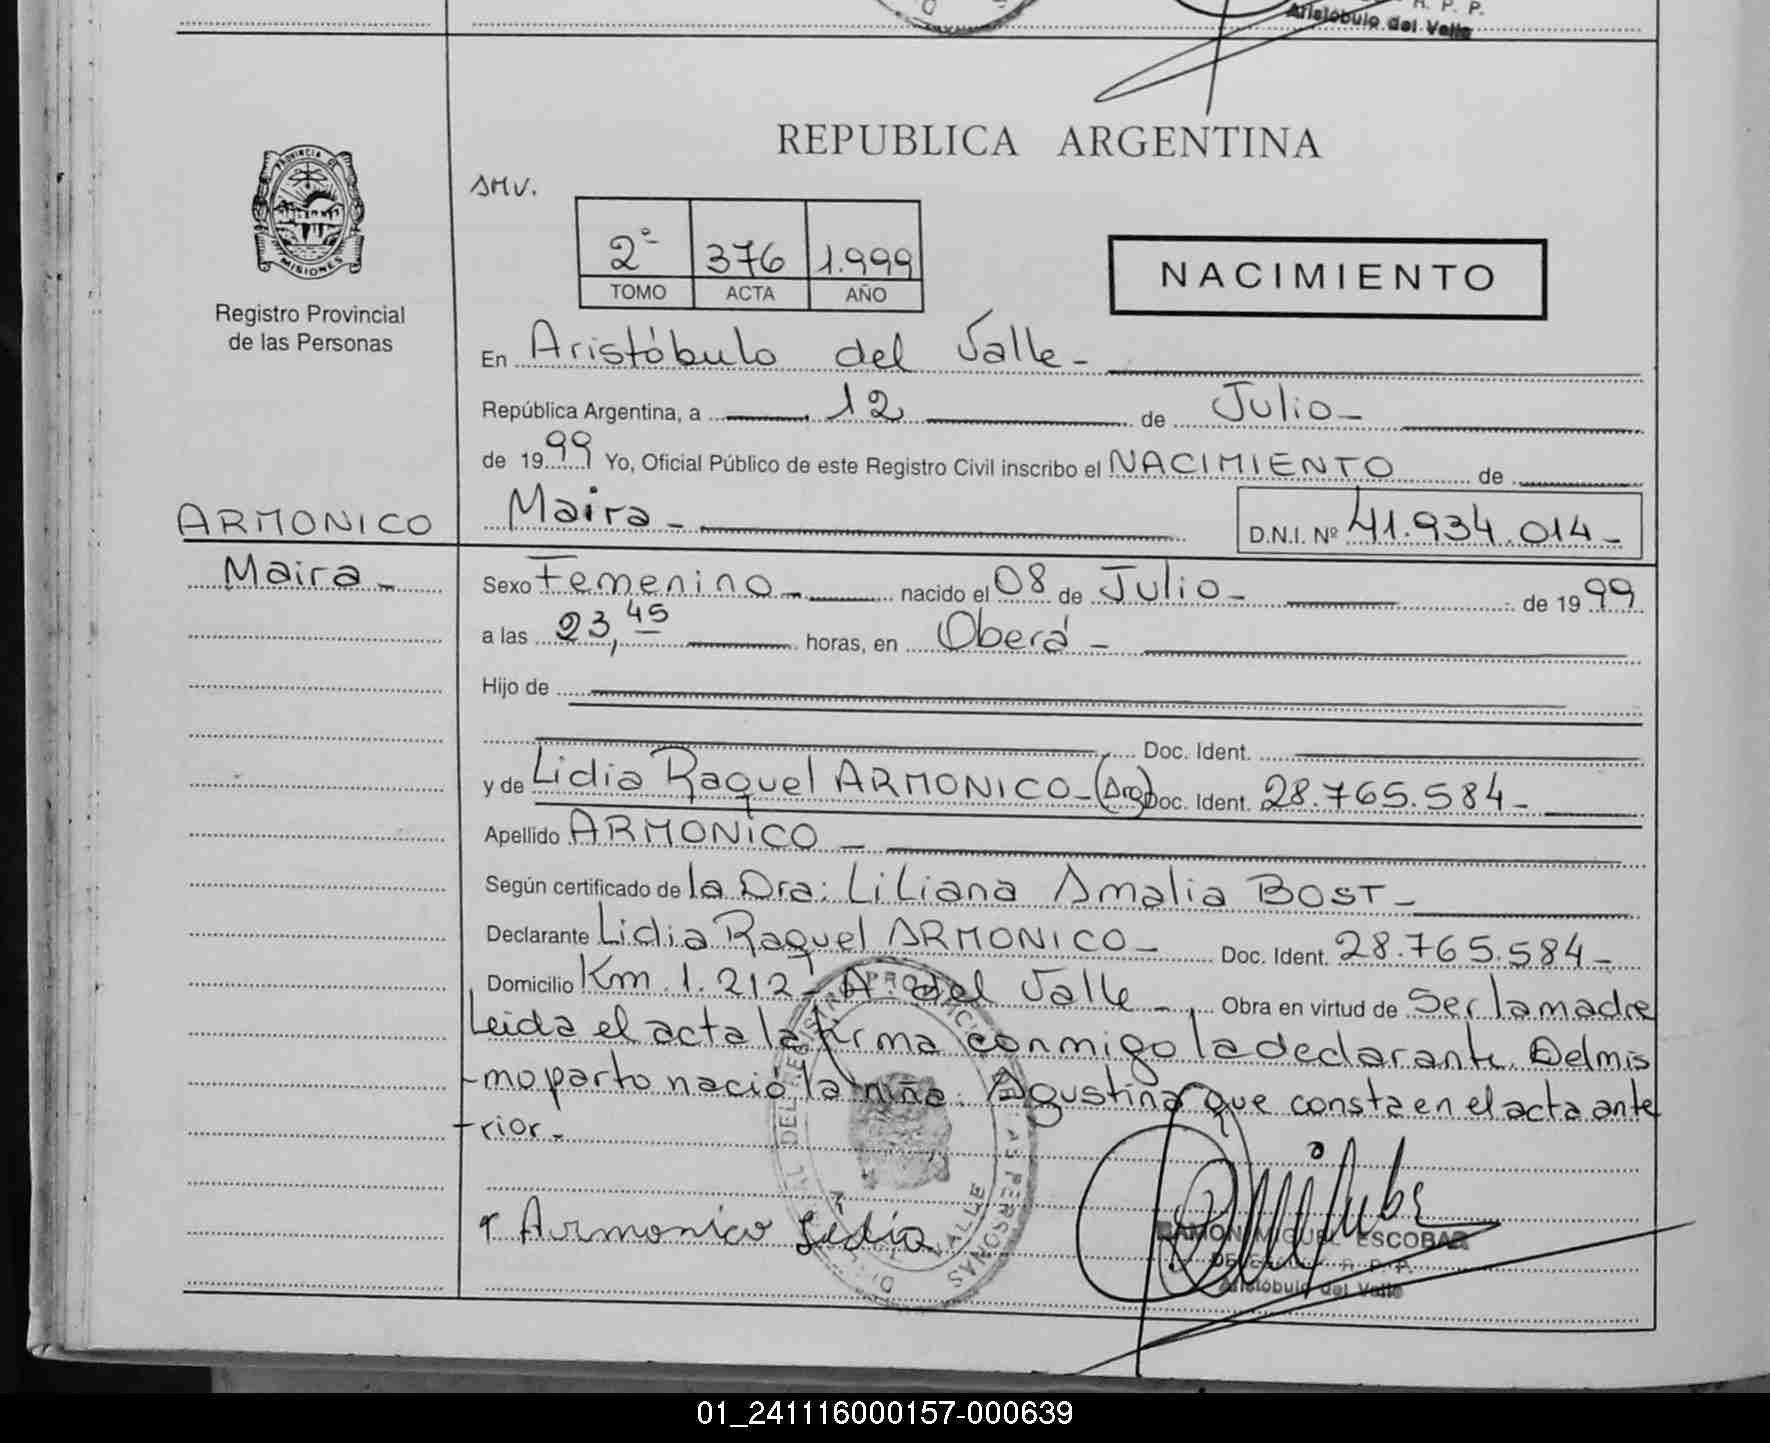 R. P. P.
Aristóbulo del Valle
REPUBLICA ARGENTINA
PROVINCIA DE
MISIONES
SMV.
2º 376 1.999
TOMO ACTA AÑO
NACIMIENTO
Registro Provincial
de las Personas
En Aristóbulo del Valle-
República Argentina, a 12 de Julio-
de 1999 Yo, Oficial Público de este Registro Civil inscribo el NACIMIENTO de
ARMONICO
Maira- D.N.I. Nº 41.934.014-
Maira-
Sexo Femenino- nacido el 08 de Julio- de 1999
a las 23,45 horas, en Oberá-
Hijo de
Doc. Ident.
y de Lidia Raquel ARMONICO-(Arg) Doc. Ident. 28.765.584-
Apellido ARMONICO-
Según certificado de la Dra: Liliana Amalia BOST-
Declarante Lidia Raquel ARMONICO- Doc. Ident. 28.765.584-
Domicilio Km. 1.212- A. del Valle-, Obra en virtud de Ser la madre
Leida el acta la firma conmigo la declarante. Del mis
-mo parto nació la niña: Agustina que consta en el acta ante
-rior-
Armonico Lidia
RAMON MIGUEL ESCOBAR
R. P. P.
Aristóbulo del Valle
01_241116000157-000639